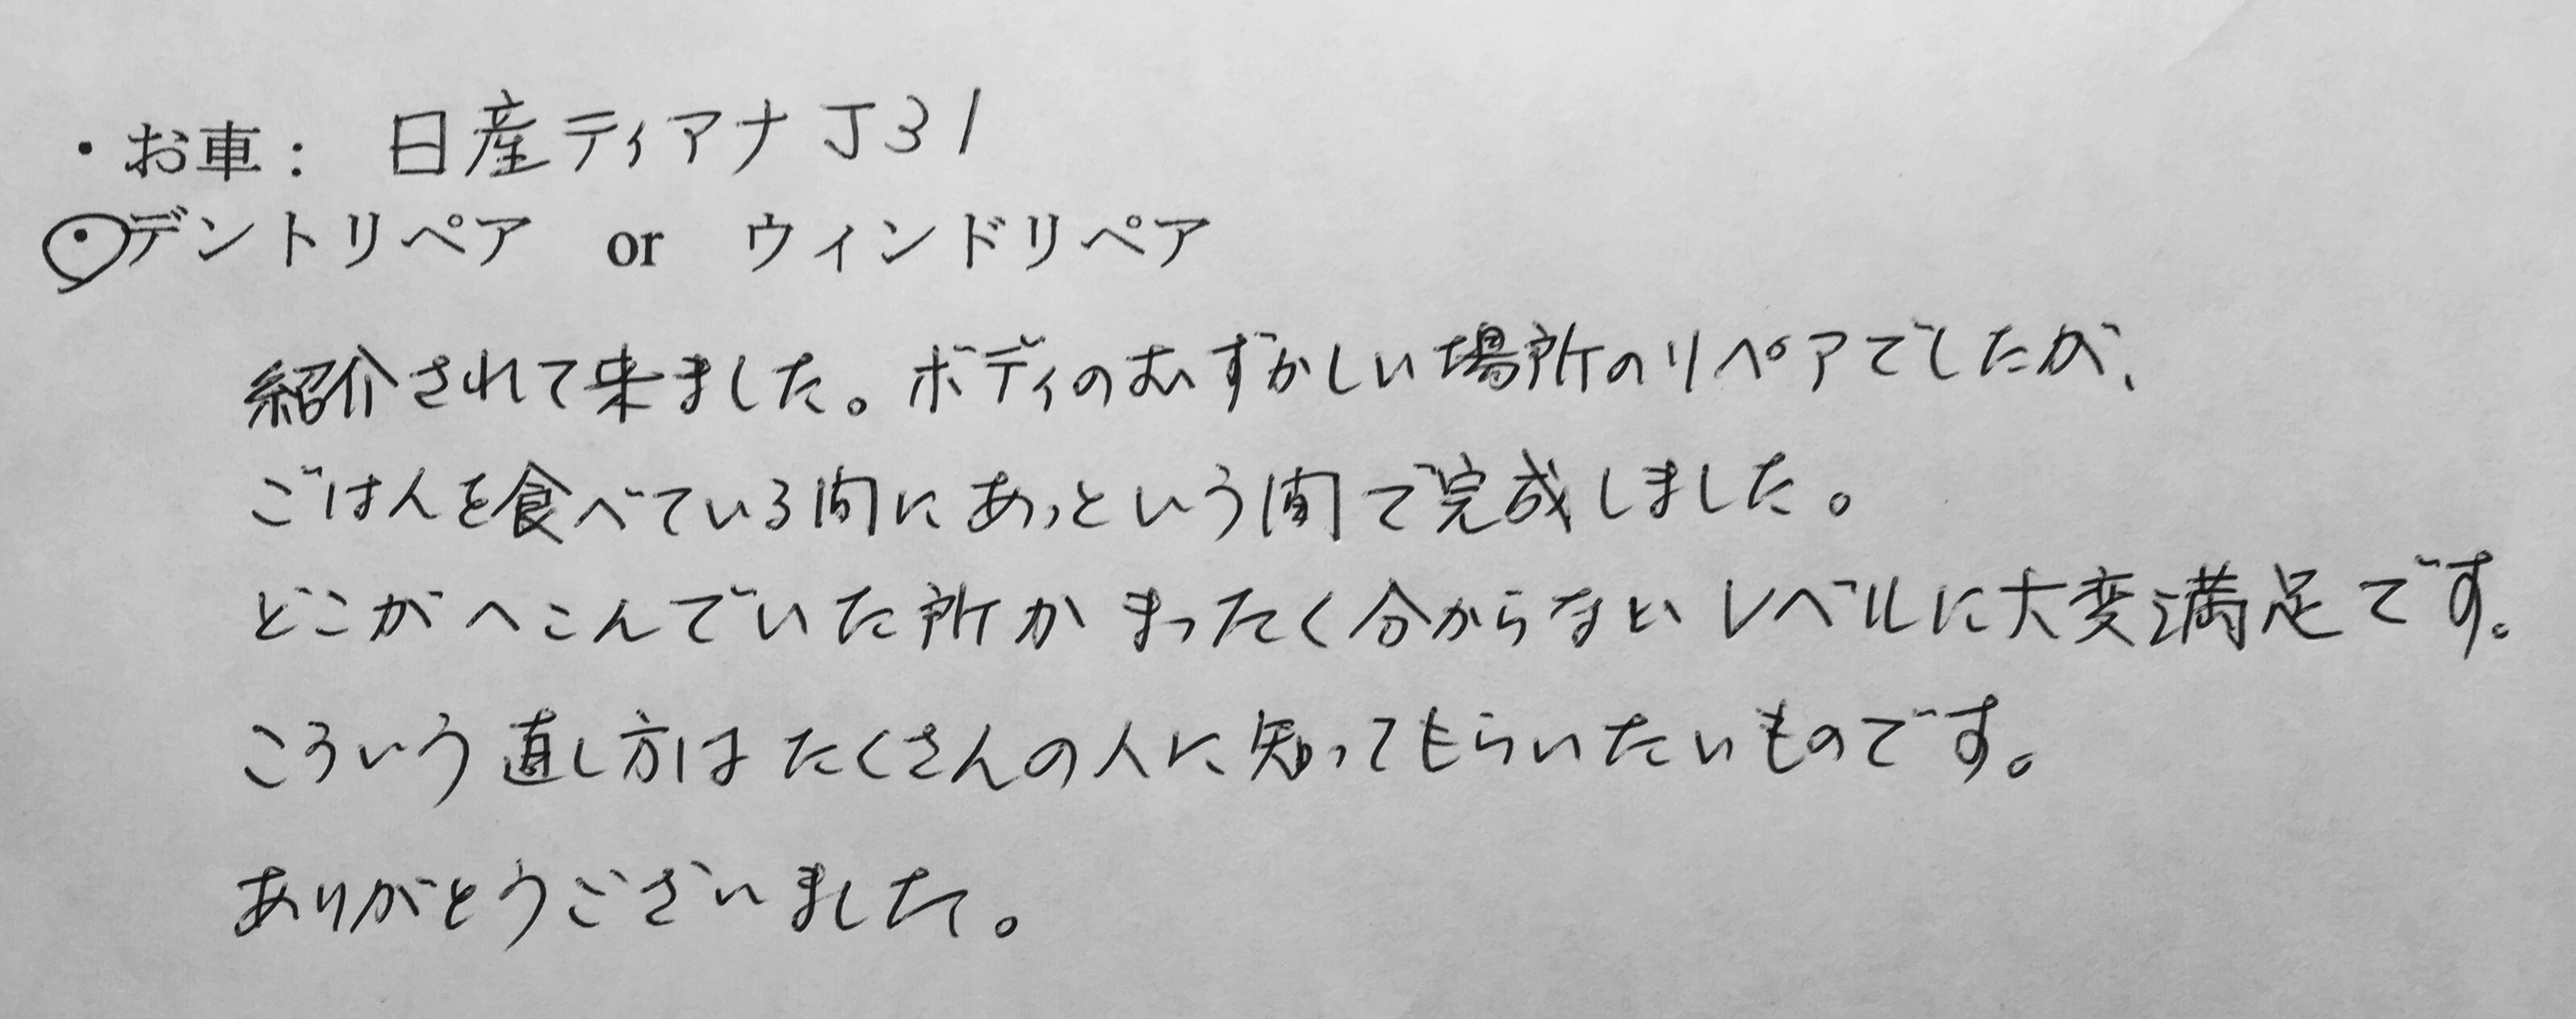 ・お車： 日産ティアナJ31
・デントリペア or ウィンドリペア
紹介されて来ました。ボディのむずかしい場所のリペアでしたが、
ごはんを食べている間にあっという間で完成しました。
どこがへこんでいた所かまったく分からないレベルに大変満足です。
こういう直し方はたくさんの人に知ってもらいたいものです。
ありがとうございました。